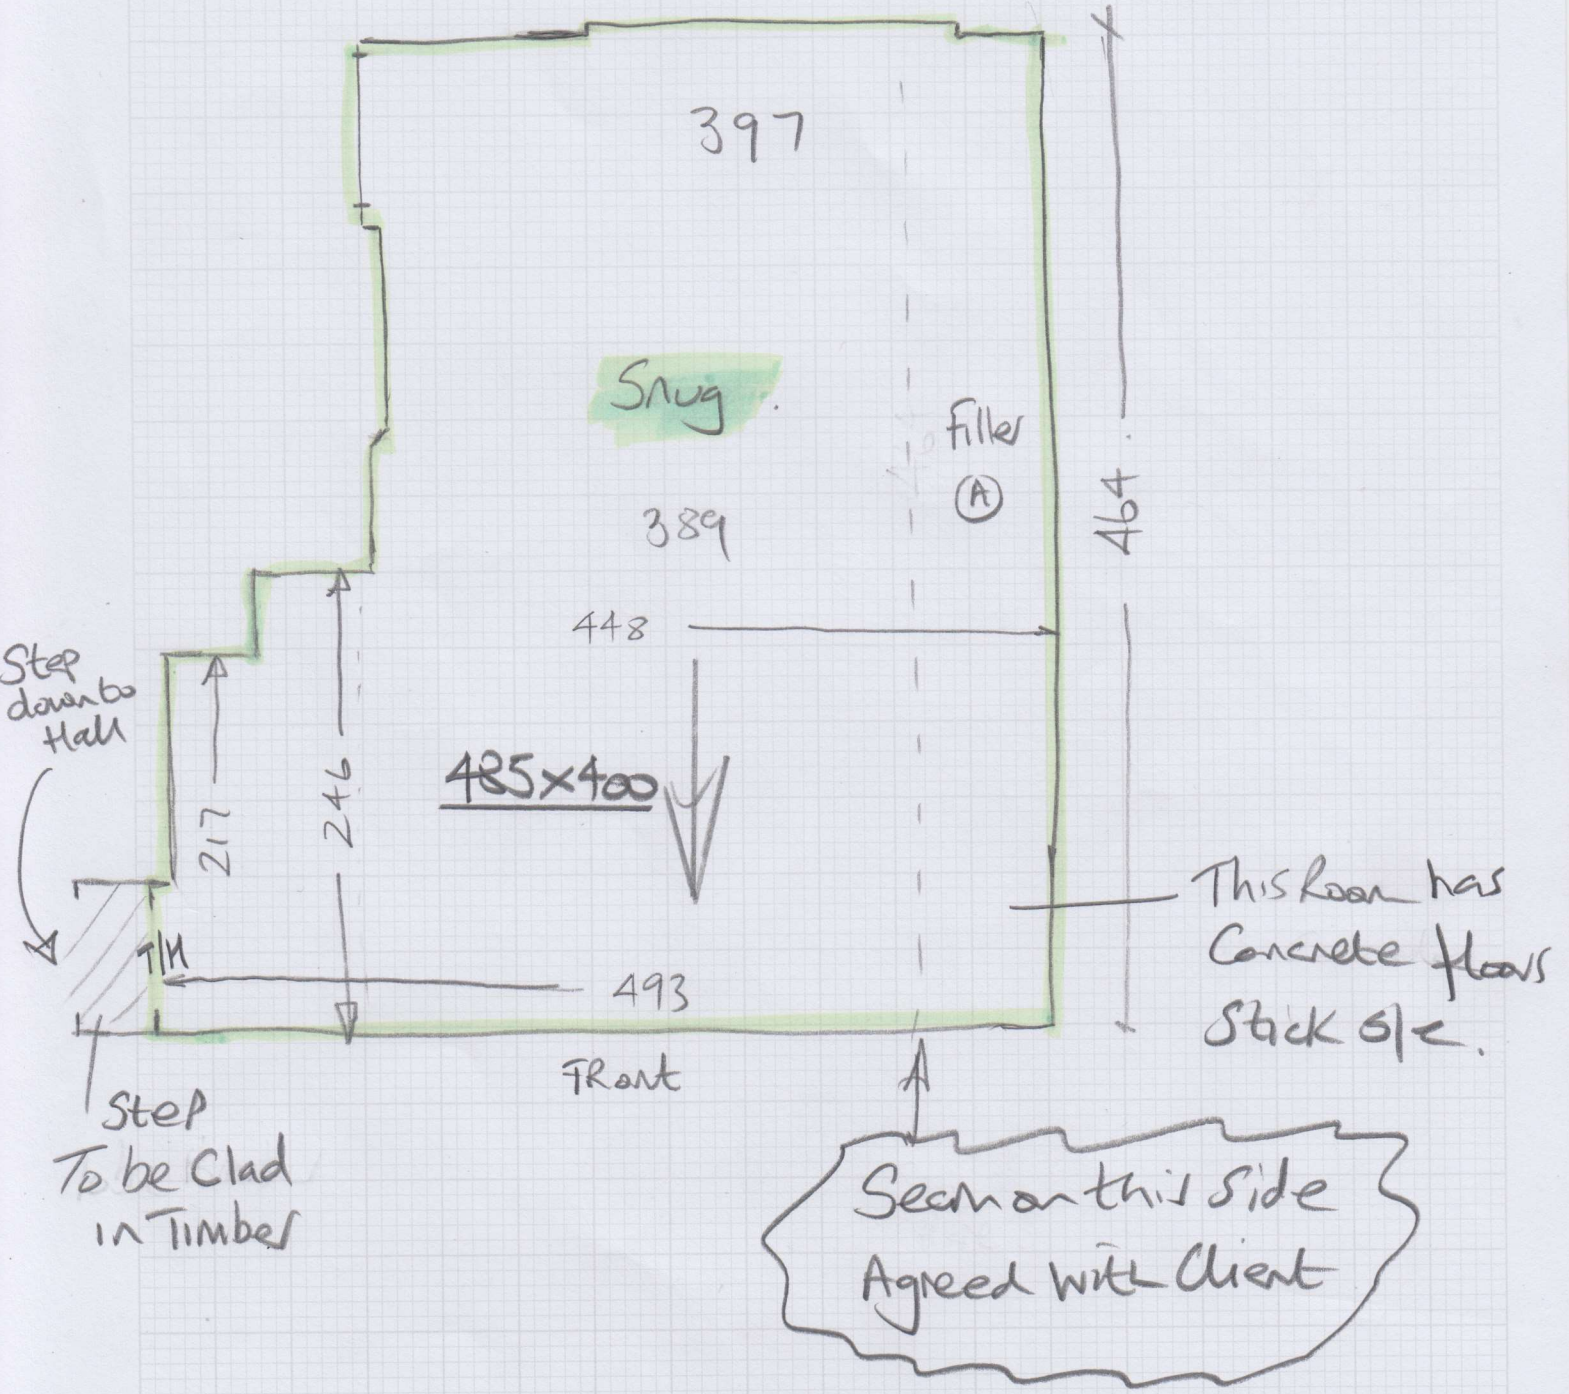 397
Snug.
Filler
A
389
464
448
Step
down to
Hall
485x400
246
217
This Room has
Concrete floors
Stick o/e.
T/H
493
Front
Step
To be Clad
in Timber
Seam on this side
Agreed with Client